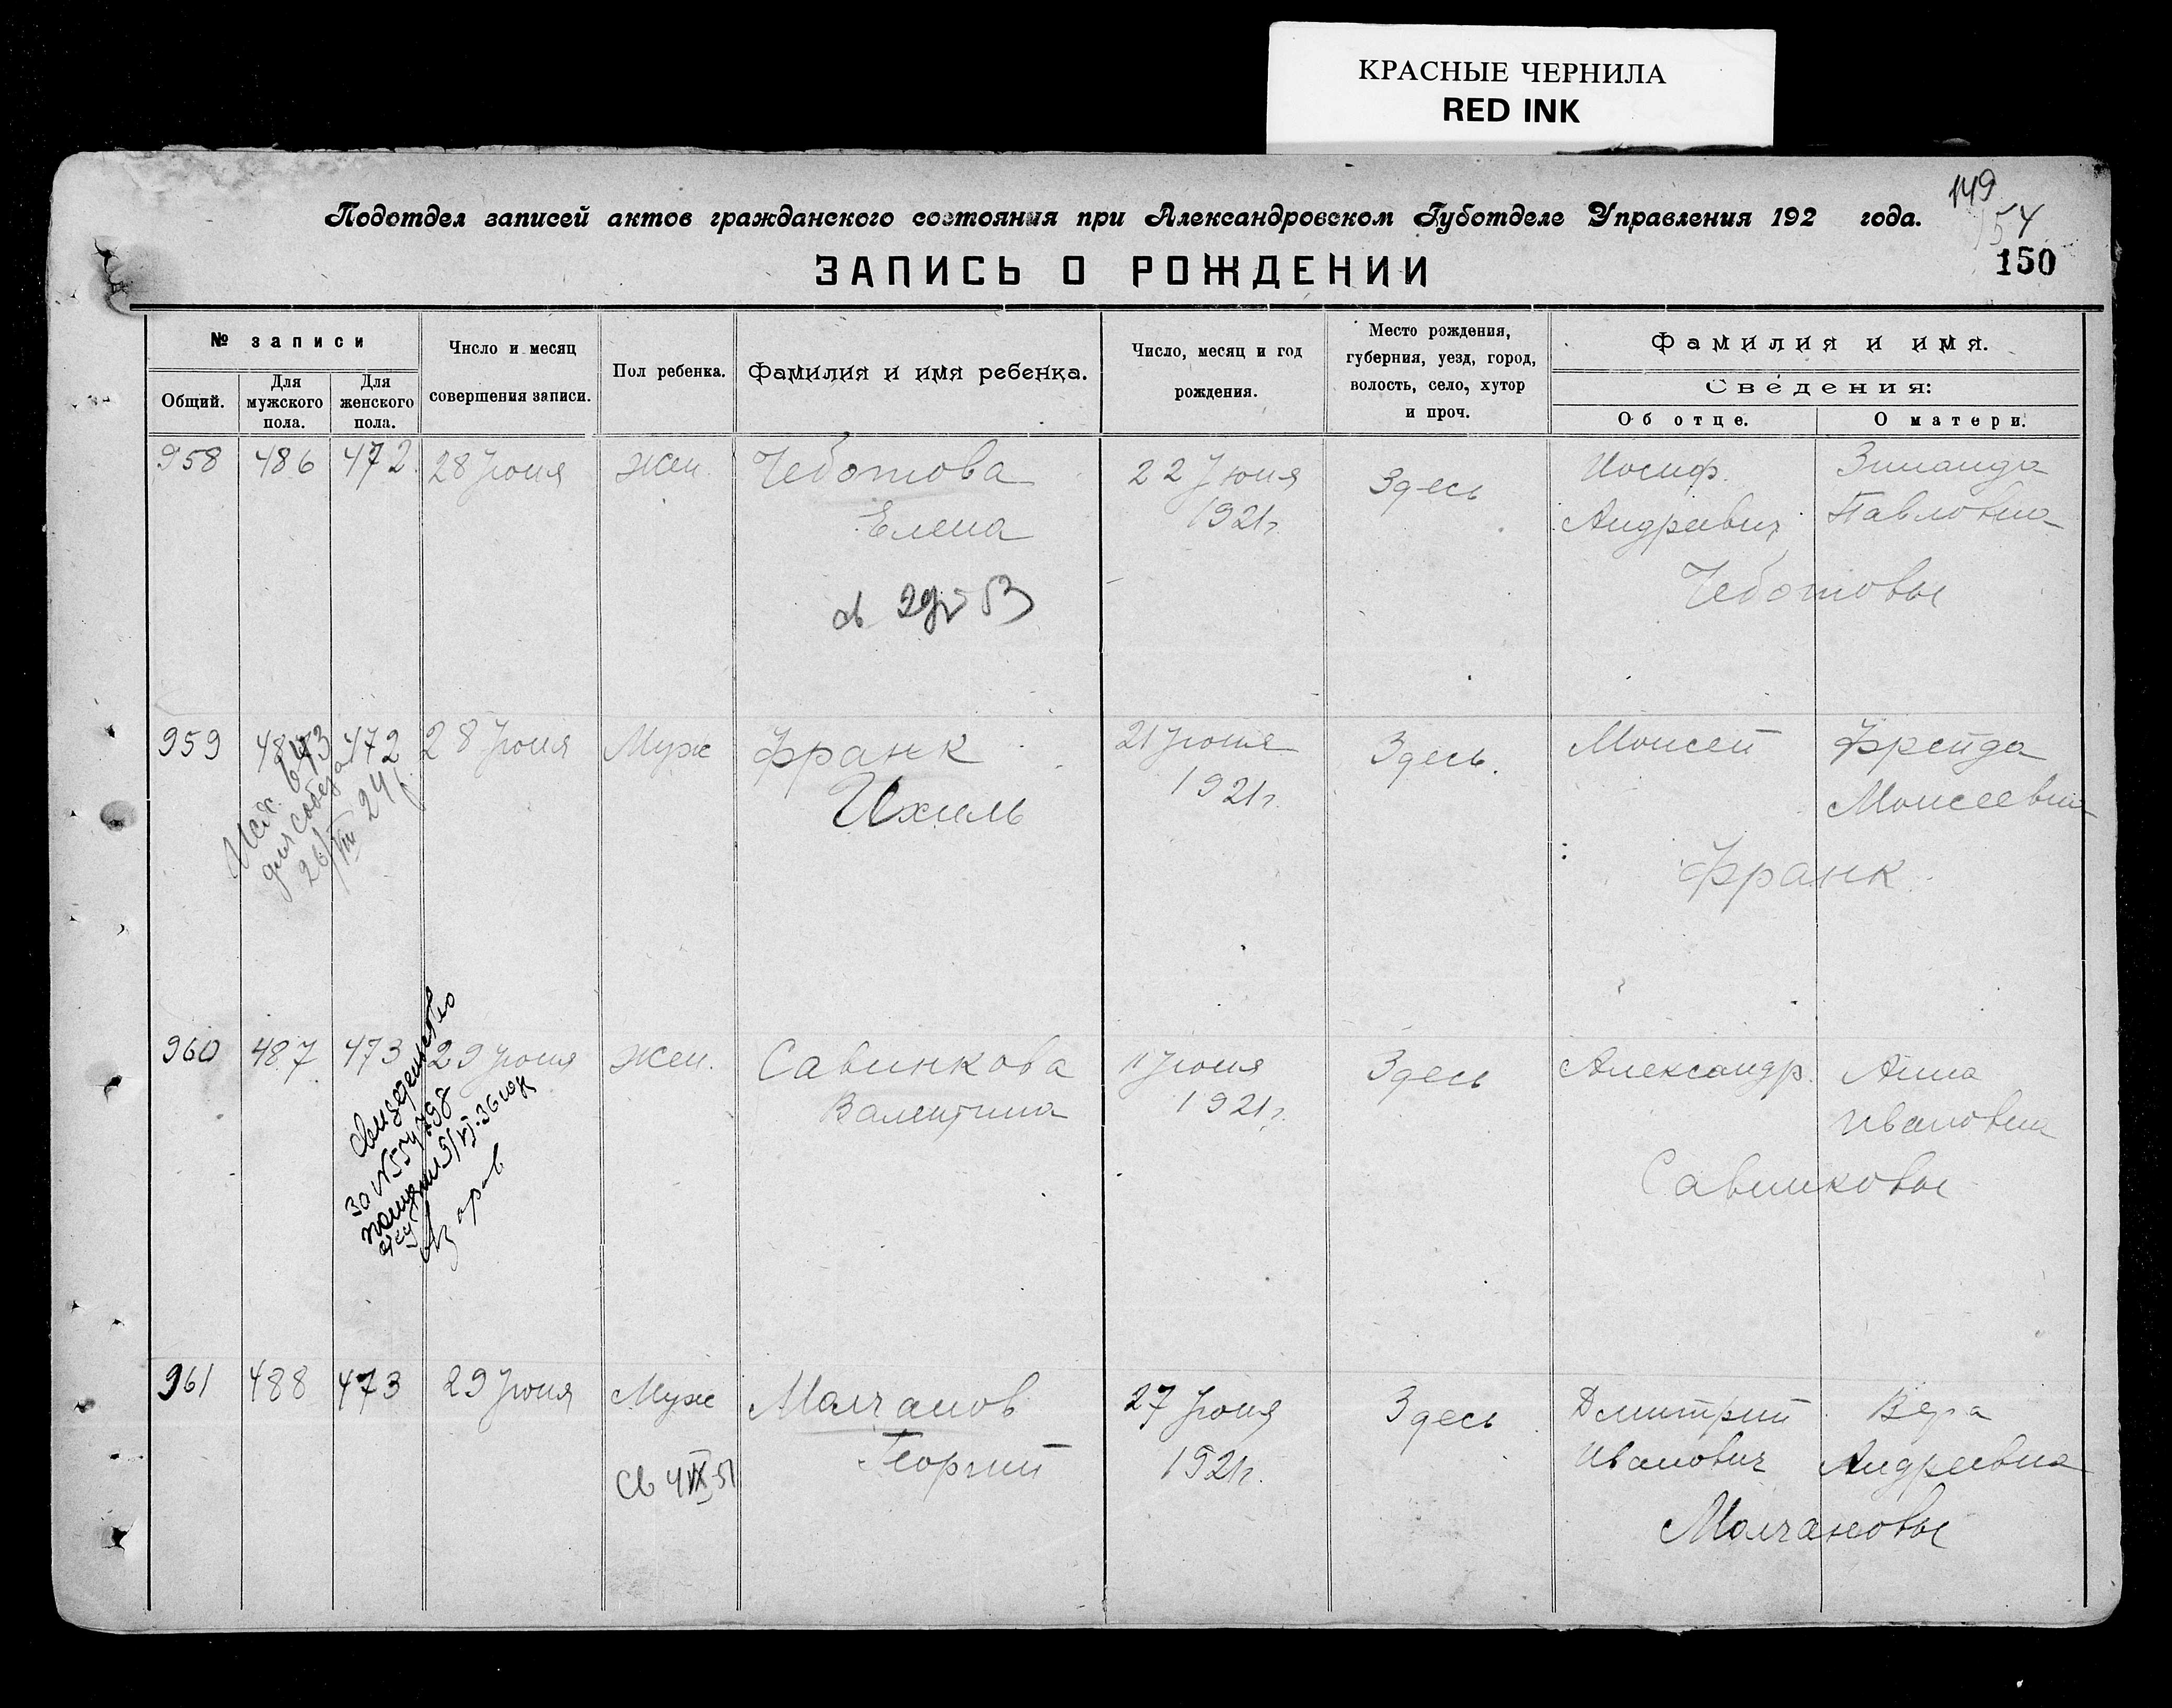 КРАСНЫЕ ЧЕРНИЛА
RED INK
149
154
150
Подотдел записей актов гражданского состояния при Александровском Губотделе Управления 192 года.
ЗАПИСЬ О РОЖДЕНИИ
№ записи
Общий.
Для мужского пола.
Для женского пола.
Число и месяц
совершения записи.
Пол ребенка.
Фамилия и имя ребенка.
Число, месяц и год
рождения.
Место рождения,
губерния, уезд, город,
волость, село, хутор
и проч.
Фамилия и имя.
Сведения:
Об отце.
О матери.
958 486 472 28 Июня Жен. Чеботова 22 Июня Здесь Иосиф. Зинаида
Елена 1921г. Андреевич Павловна
Чеботовы
959 472 28 Июня Муж Франк 21 Июня Здесь. Моисей Фрейда
Ихиль 1921г. Моисеевна
Франк
643
для собеза
26/VIII 24
960 487 473 29 Июня Жен. Савинкова 11 Июня Здесь Александр. Анна
Валентина 1921г. Ивановна
Савинковы
Свидетельство
961 488 473 29 Июня Муж Молчанов 27 Июня Здесь Дмитрий Вера
Георгий 1921г. Иванович Андреевна
Св 4 IX 51
Молчановы